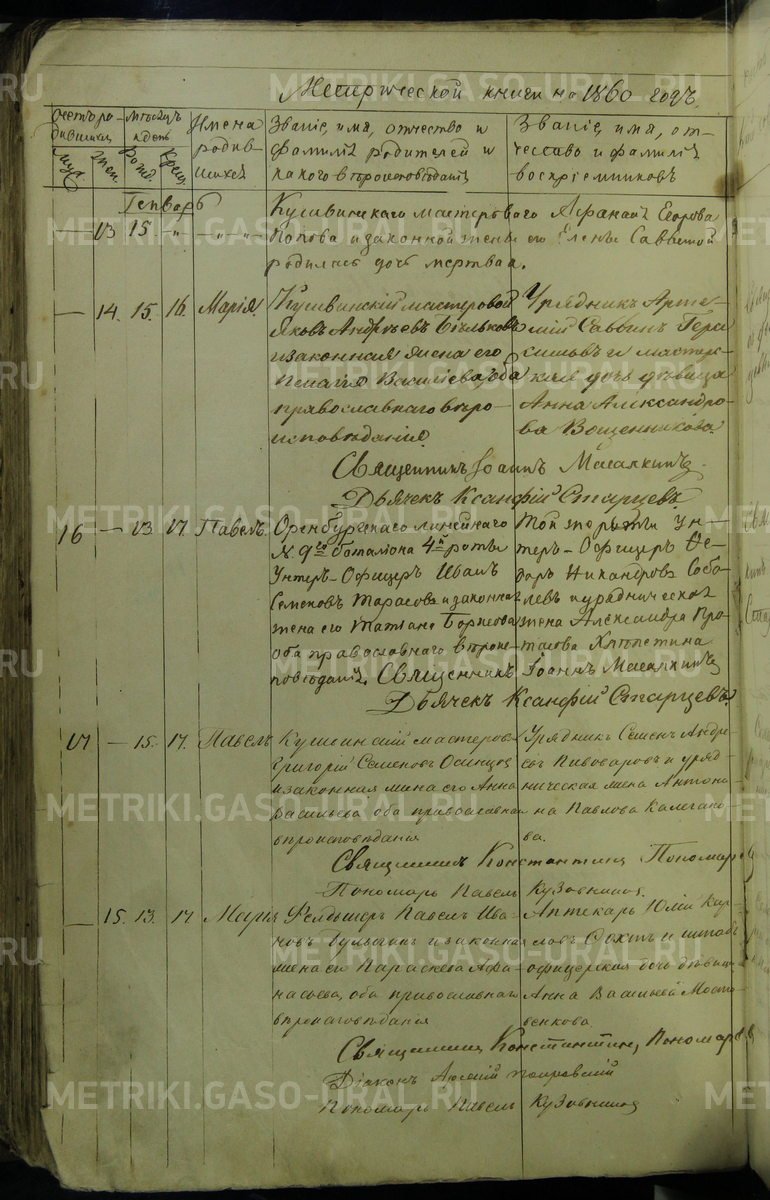 Метрической книги на 1860 годъ.
Счетъ ро-
дившихся
Муж. Жен.
Мѣсяцъ
и день
Рожд. Крещ.
Имена
родив-
шихся
Званіе, имя, отчество и
фамилія родителей и
какого вѣроисповѣданія
Званіе, имя, от-
чество и фамилія
воспріемниковъ
Генварь
— 13 15. " " " "
Кушвинскаго мастероваго Егорова
Попова и законной жены его Елены Саввиной
родилась дочь мертвая.
— 14. 15. 16. Марія.
Кушвинскій мастеровой
Яковъ Андреевъ
и законная жена его
Пелагія Васильева, оба
православнаго вѣро-
исповѣданія.
Урядникъ Арте-
мій Саввинъ Гера-
симовъ и мастерс-
кая дочь дѣвица
Анна Александро-
ва Вощенникова.
Священникъ Іоаннъ Масалкинъ
Дьячекъ Ксанфій Старцевъ.
16 — 13 17. Павелъ.
Оренбургскаго линейнаго
№ 9го баталіона 4й роты
Унтеръ-Офицеръ Иванъ
Семеновъ Тарасовъ и законная
жена его Татьяна Борисова
оба православнаго вѣроис-
повѣданія.
Той же роты Ун-
теръ-Офицеръ Ѳе-
доръ Никандровъ Собо-
левъ и урядническая
жена Александра Про-
тасова
Священникъ Іоаннъ Масалкинъ
Дьячекъ Ксанфій Старцевъ.
17 — 15. 17. Павелъ
Кушвинскій мастеровой
Григорій Семеновъ Осинцов
и законная жена его Анна
Васильева оба православнаго
вѣроисповѣданія
Урядникъ Семенъ Андре-
евъ Пивоваровъ и уряд-
ническая жена Антони-
на Павлова Калегано-
ва.
Священникъ Константинъ Пономарев
Пономарь Павелъ Кузовниковъ.
— 15. 13. 17. Марія
Фелдшеръ Павелъ Ива-
новъ и законная
жена его Параскева Афа-
насьева, оба православнаго
вѣроисповѣданія
Аптекарь Юлій Кар-
ловъ и штабъ
офицерская дочь дѣвица
Анна Васильева Мосто-
венкова
Священникъ Константинъ Пономарев
Діаконъ Покровскій
Пономарь Павелъ Кузовниковъ
METRIKI.GASO-URAL.RU